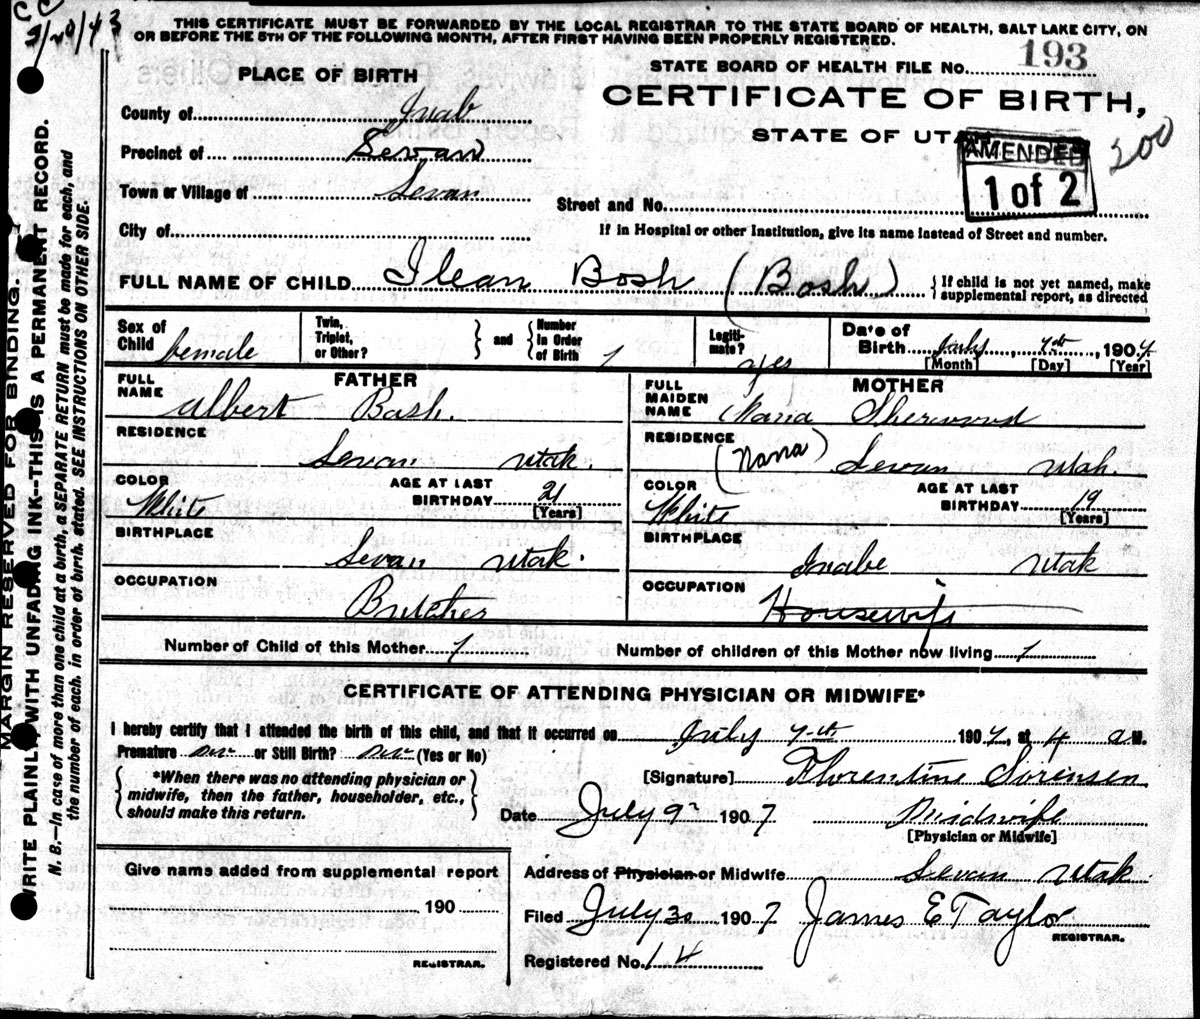 CC
3/20/43
THIS CERTIFICATE MUST BE FORWARDED BY THE LOCAL REGISTRAR TO THE STATE BOARD OF HEALTH, SALT LAKE CITY, ON
OR BEFORE THE 5TH OF THE FOLLOWING MONTH, AFTER FIRST HAVING BEEN PROPERLY REGISTERED.
STATE BOARD OF HEALTH FILE No. 193
PLACE OF BIRTH
CERTIFICATE OF BIRTH,
STATE OF UTAH
AMENDED
1 of 2
200
County of Juab
Precinct of Levan
Town or Village of Levan
Street and No.
City of
If in Hospital or other Institution, give its name instead of Street and number.
FULL NAME OF CHILD Ilean Bosh (Bosh) { If child is not yet named, make
supplemental report, as directed
Sex of Child female
Twin, Triplet, or Other? } and { Number in Order of Birth 1
Legiti-mate? yes
Date of Birth July, 7th, 1907
[Month] [Day] [Year]
FATHER
FULL NAME Albert Bosh.
RESIDENCE
Levan Utah.
COLOR White AGE AT LAST BIRTHDAY 21
[Years]
BIRTHPLACE
Levan Utah.
OCCUPATION
Butcher
MOTHER
FULL MAIDEN NAME Nana Sherwood
RESIDENCE (Nana) Levan Utah.
COLOR White AGE AT LAST BIRTHDAY 19
[Years]
BIRTHPLACE
Juabe Utah
OCCUPATION
Housewife
Number of Child of this Mother 1 Number of children of this Mother now living 1
CERTIFICATE OF ATTENDING PHYSICIAN OR MIDWIFE*
I hereby certify that I attended the birth of this child, and that it occurred on July 7th 1907, at 4 a M.
Premature or Still Birth? (Yes or No)
{ *When there was no attending physician or
midwife, then the father, householder, etc.,
should make this return. }
[Signature] Florentine Sorensen
Date July 9 1907 Midwife
[Physician or Midwife]
Address of Physician or Midwife Levan Utah
Give name added from supplemental report
190
REGISTRAR.
Filed July 30 1907 James E Taylor
REGISTRAR.
Registered No. 14
MARGIN RESERVED FOR BINDING.
WRITE PLAINLY, WITH UNFADING INK--THIS IS A PERMANENT RECORD.
N. B.--In case of more than one child at a birth, a SEPARATE RETURN must be made for each, and
the number of each, in order of birth, stated. SEE INSTRUCTIONS ON OTHER SIDE.